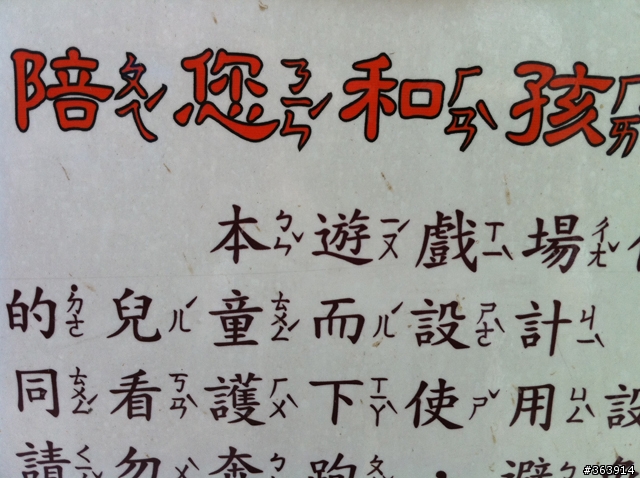 陪ㄆㄟˊ您ㄋㄧㄣˊ和ㄏㄢˋ孩ㄏㄞ
本ㄅㄣˇ遊ㄧㄡˊ戲ㄒㄧˋ場ㄔㄤˇ
的˙ㄉㄜ兒ㄦˊ童ㄊㄨㄥˊ而ㄦˊ設ㄕㄜˋ計ㄐㄧˋ
同ㄊㄨㄥˊ看ㄎㄢ護ㄏㄨˋ下ㄒㄧㄚˋ使ㄕˇ用ㄩㄥˋ設
請ㄑㄧ勿ㄨˋ奔ㄅ跑ㄆ，避ㄅ
#363914